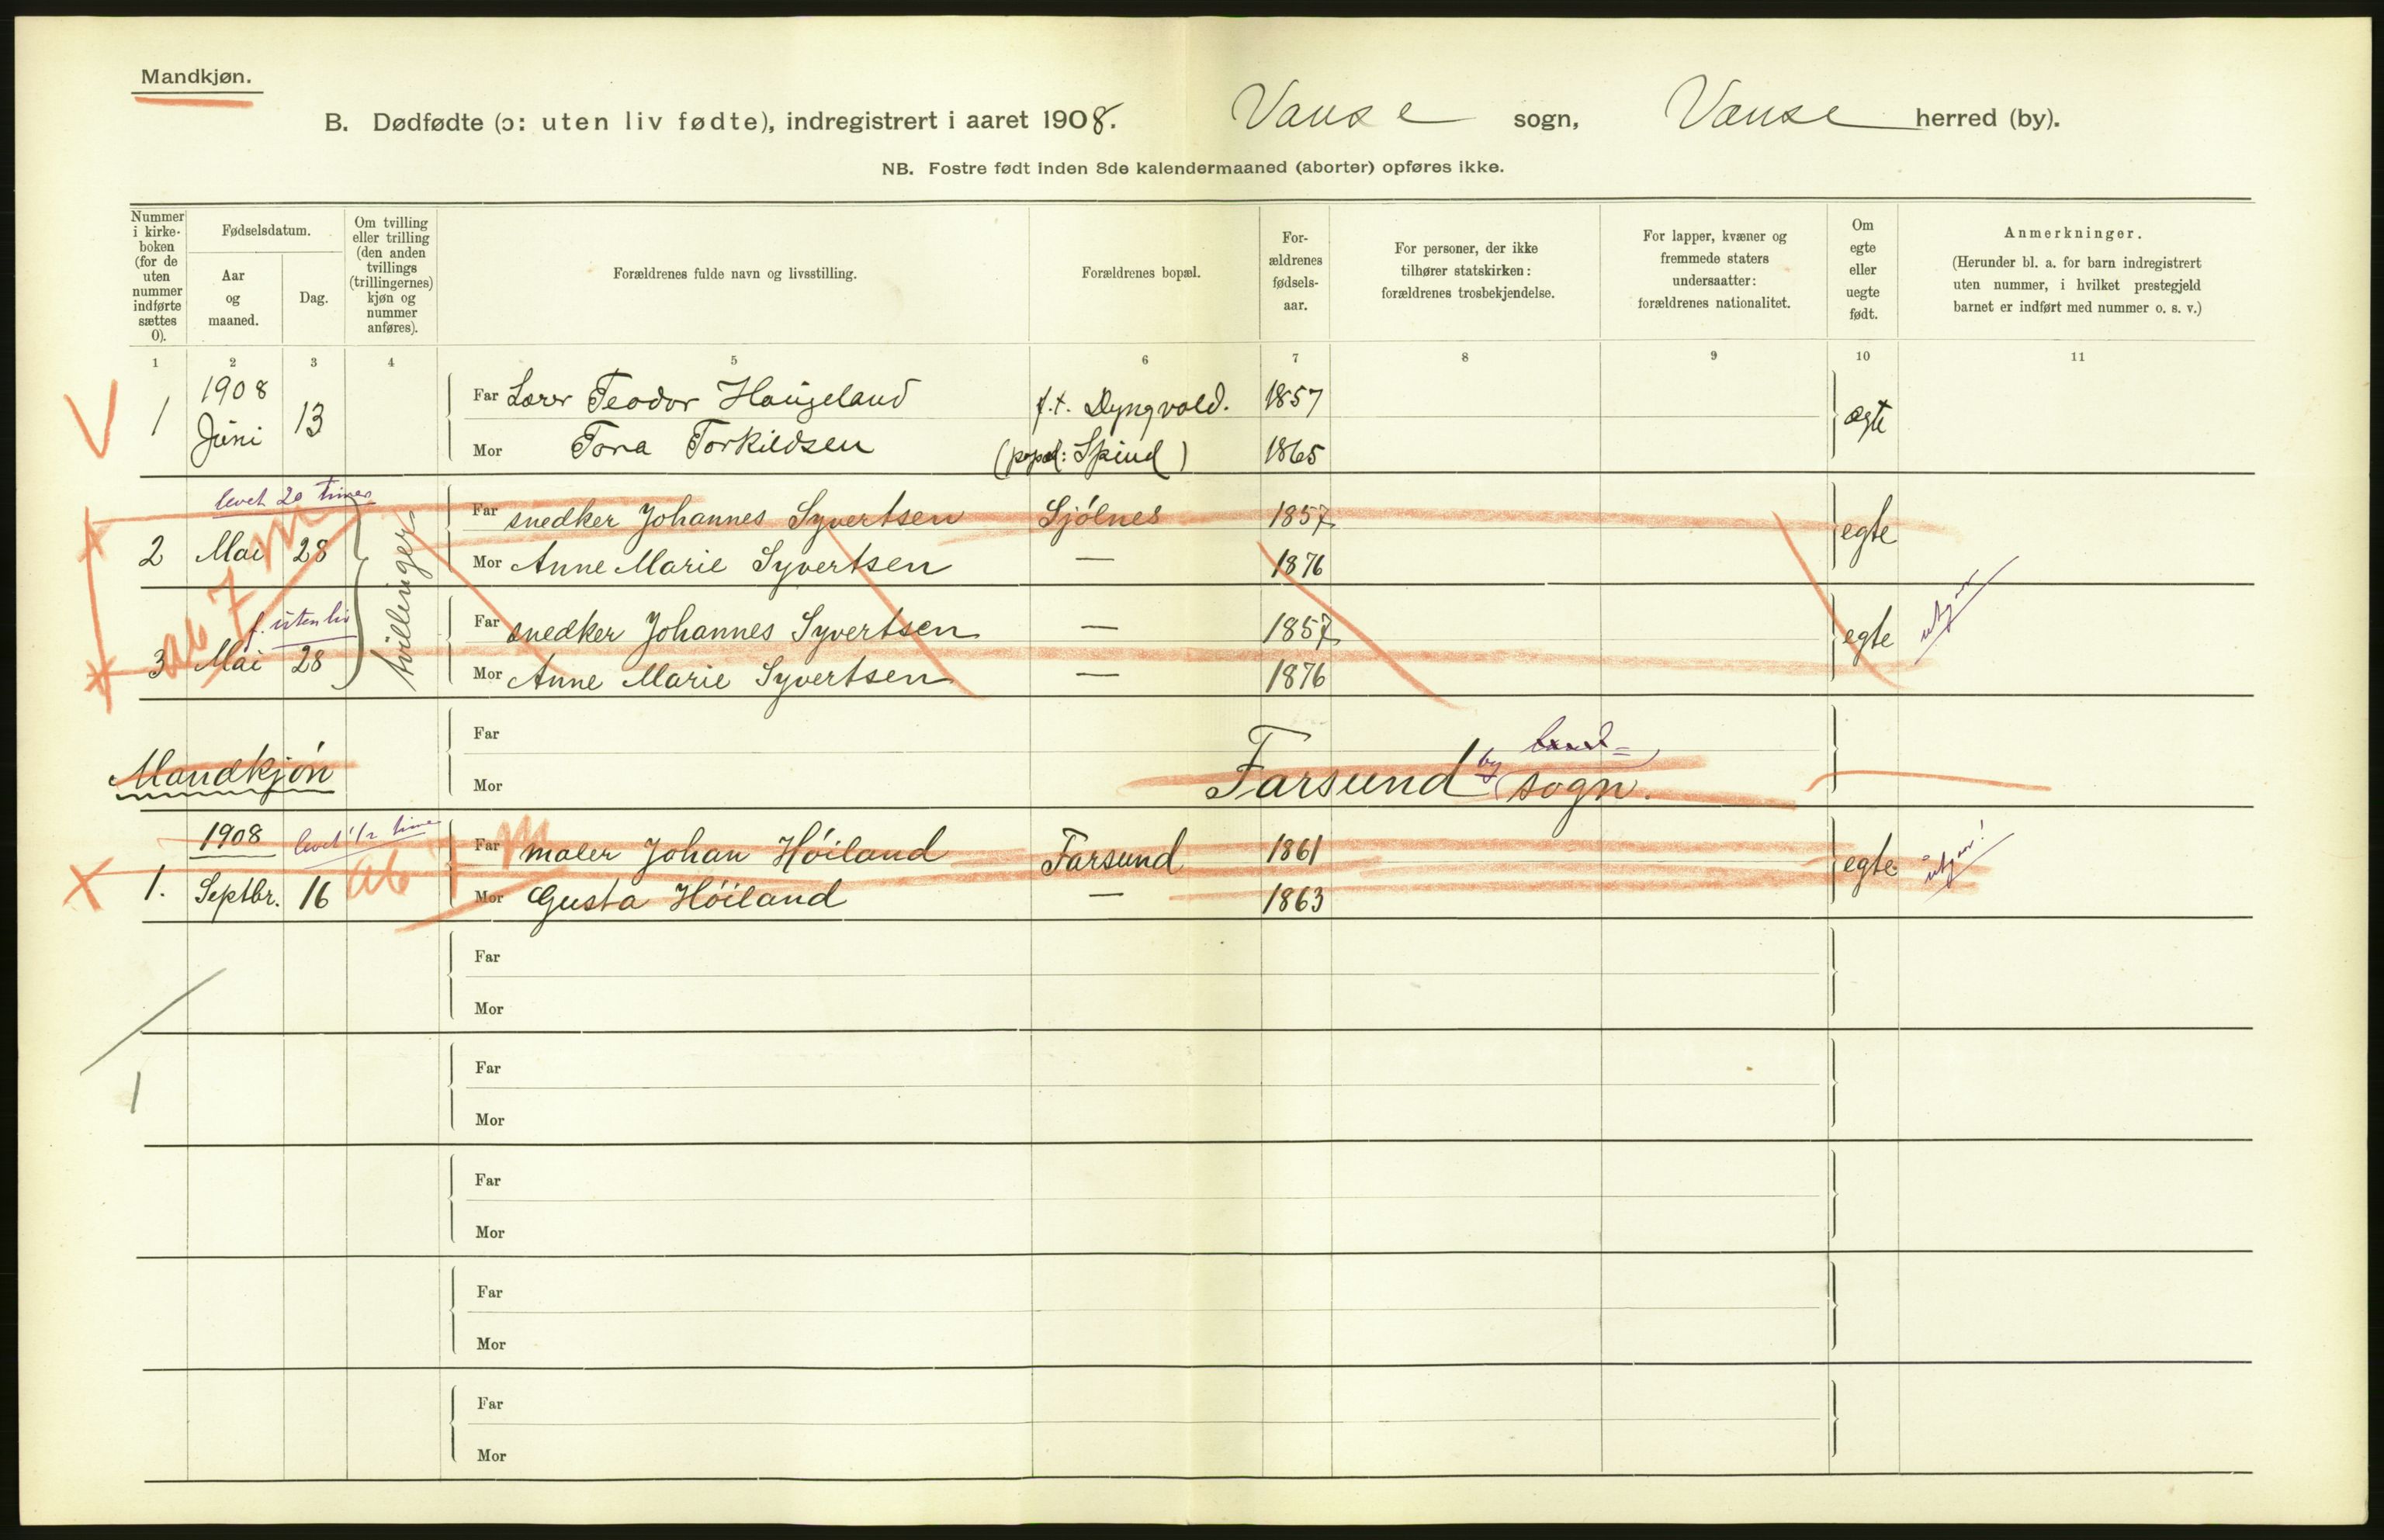 Mandkjøn.
B. Dødfødte (ɔ: uten liv fødte), indregistrert i aaret 1908. Vanse sogn, Vanse herred (by).
NB. Fostre født inden 8de kalendermaaned (aborter) opføres ikke.
Nummer i kirke-boken (for de uten nummer indførte sættes 0).
Fødselsdatum.
Aar og maaned.
Dag.
Om tvilling eller trilling (den anden tvillings (trillingernes) kjøn og nummer anføres).
Forældrenes fulde navn og livsstilling.
Forældrenes bopæl.
For-ældrenes fødsels-aar.
For personer, der ikke tilhører statskirken: forældrenes trosbekjendelse.
For lapper, kvæner og fremmede staters undersaatter: forældrenes nationalitet.
Om egte eller uegte født.
Anmerkninger.
(Herunder bl. a. for barn indregistrert uten nummer, i hvilket prestegjeld barnet er indført med nummer o. s. v.)
1 2 3 4 5 6 7 8 9 10 11
1 1908 Juni 13 Far Lærer Teodor Haugeland f.t. Dyngvold. 1857 ægte
Mor Tora Torkildsen (bopæl: Spind) 1865
levet 20 timer
2 Mai 28 tvillinger Far snedker Johannes Syvertsen Sjølnes 1857 egte
Mor Anne Marie Syvertsen — 1876
f. uten liv
3 Mai 28 Far snedker Johannes Syvertsen — 1857 egte utgaar
Mor Anne Marie Syvertsen — 1876
ab 7 m
Far
Mandkjøn Mor Farsund by land- sogn.
1908 levet 1/2 time Far maler Johan Høiland Farsund 1861 egte utgaar!
1. Septbr. 16 ab 7 m Mor Gusta Høiland — 1863
Far
Mor
Far
1
Mor
Far
Mor
Far
Mor
Far
Mor